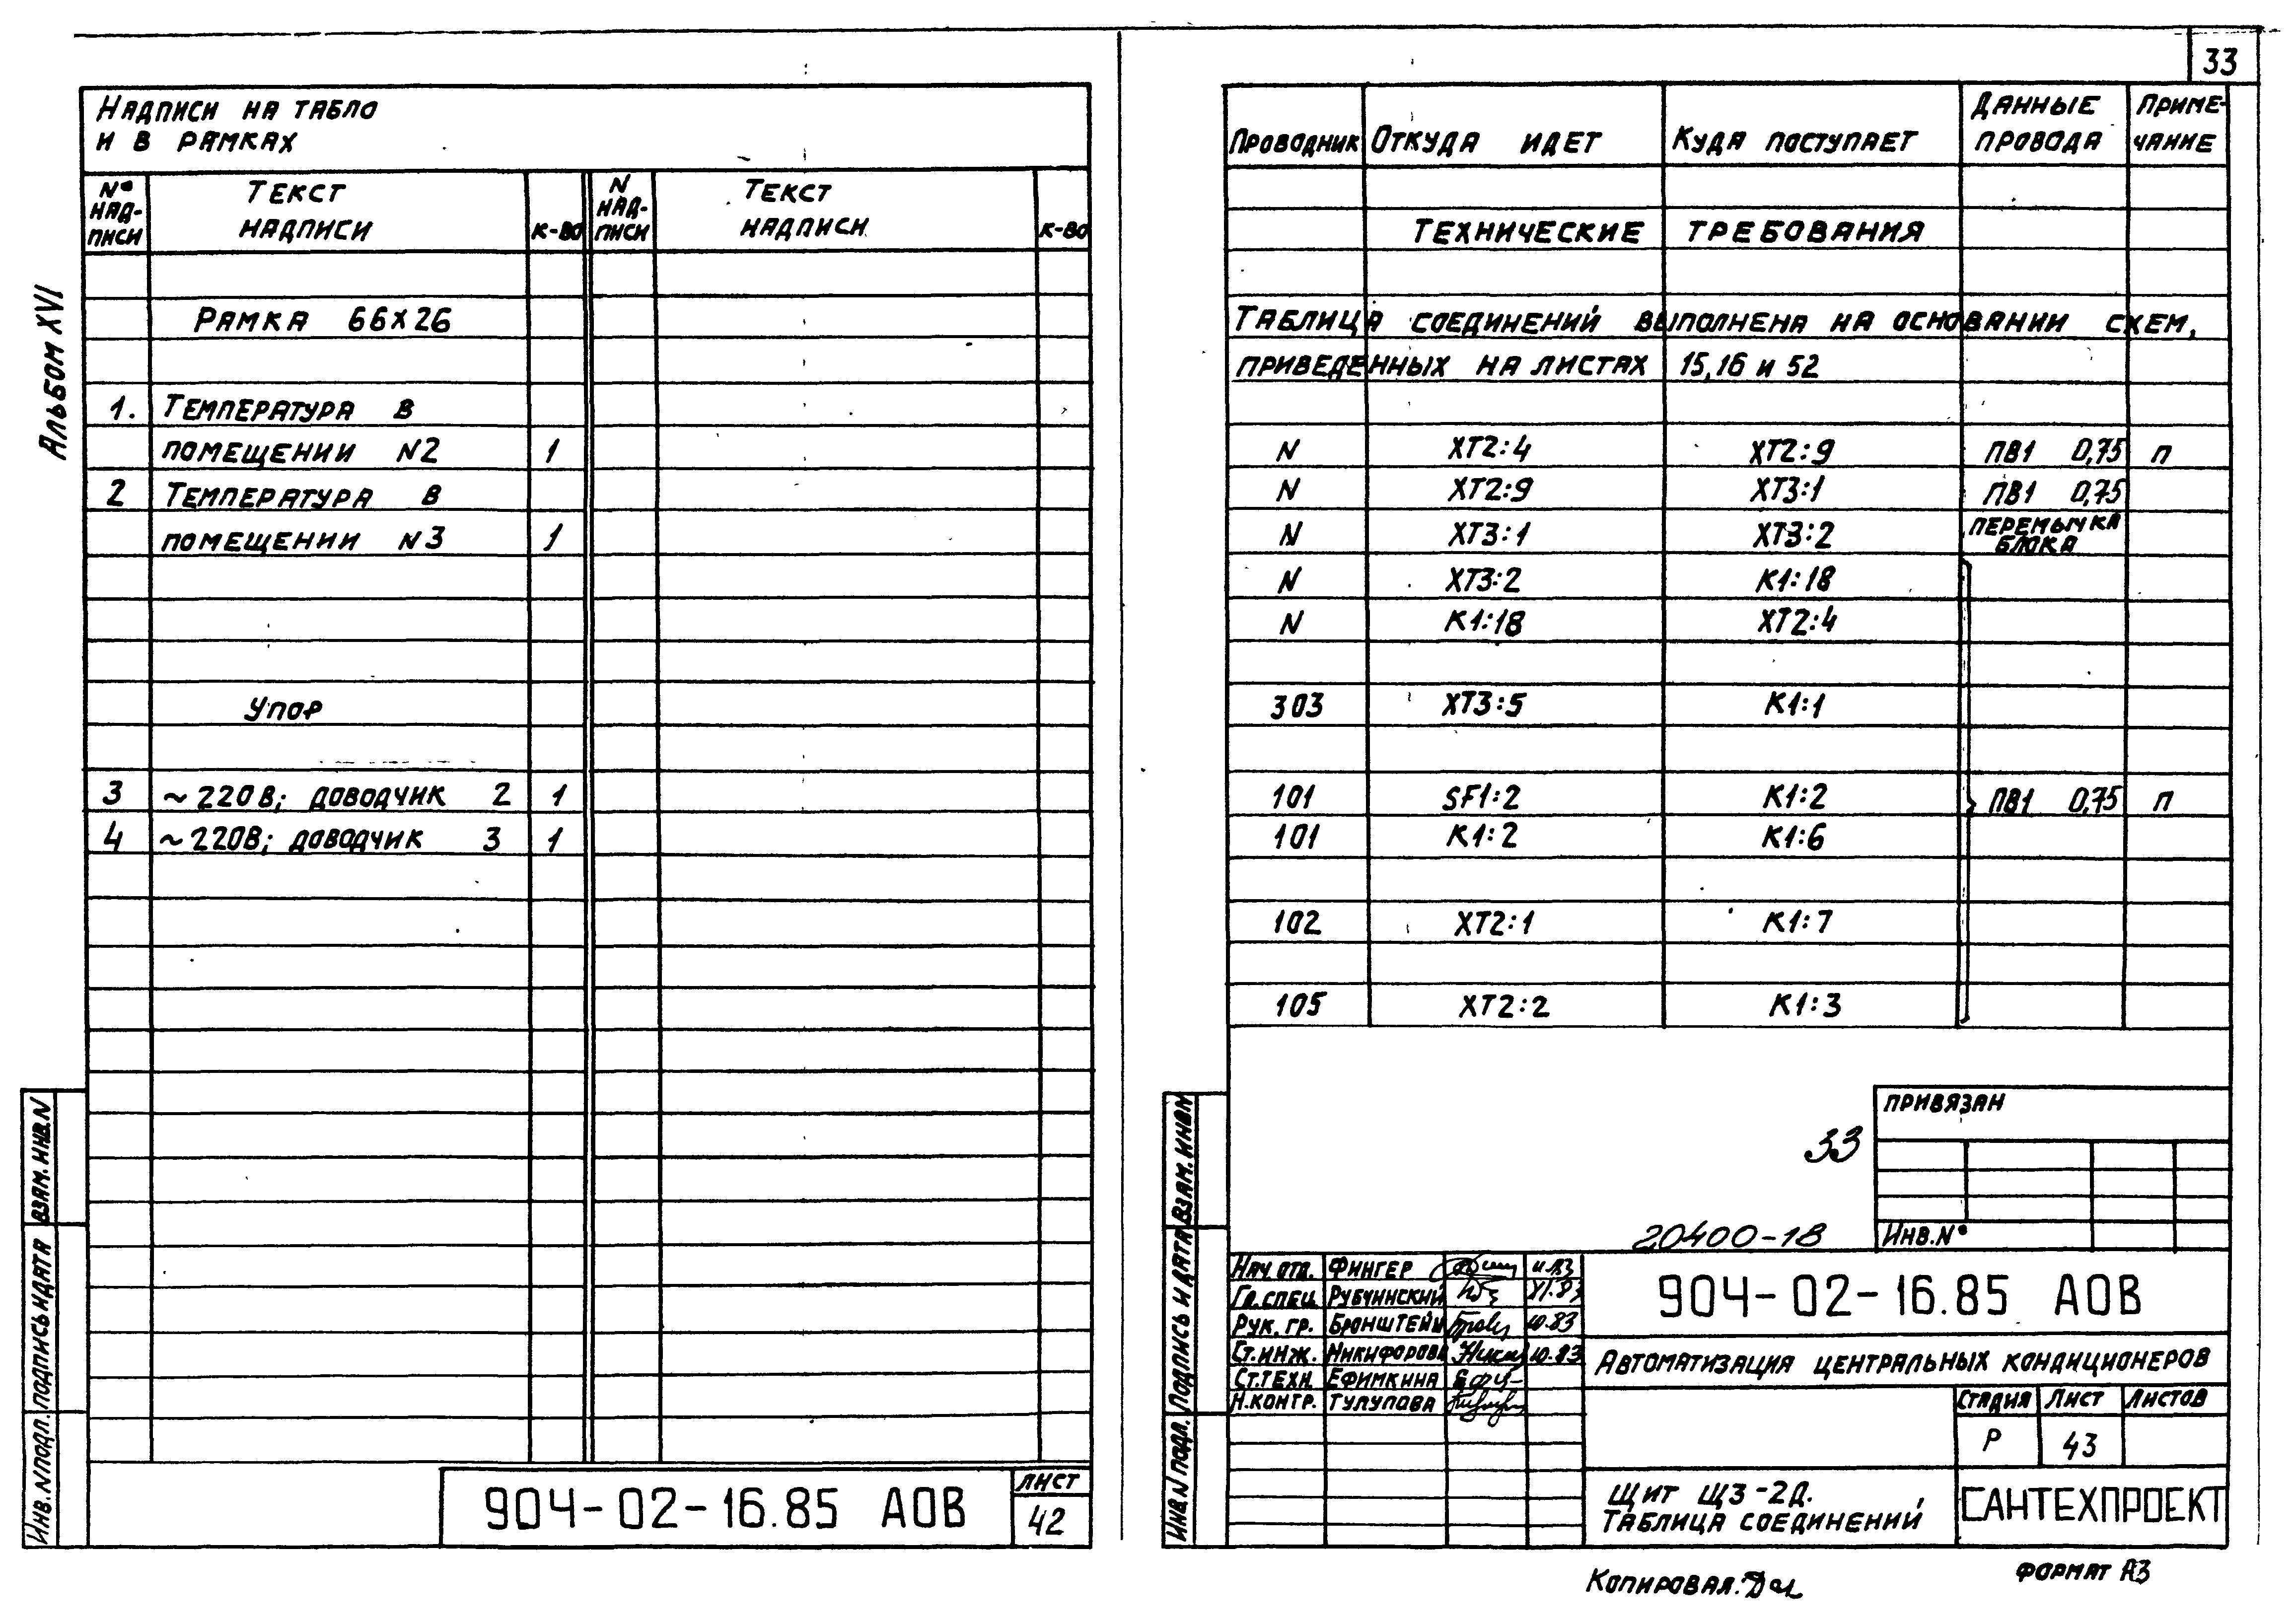 33
Альбом XVI
Надписи на табло
и в рамках
№ надписи Текст надписи к-во N надписи Текст надписи к-во
Рамка 66х26
1. Температура в
помещении N2 1
2 Температура в
помещении N3 1
Упор
3 ~220В; доводчик 2 1
4 ~220В; доводчик 3 1
Инв. N подл. Подпись и дата Взам. инв. N
904-02-16.85 АОВ
лист
42
Проводник Откуда идет Куда поступает Данные провода Примечание
Технические требования
Таблица соединений выполнена на основании схем,
приведенных на листах 15,16 и 52
N ХТ2:4 ХТ2:9 ПВ1 0,75 п
N ХТ2:9 ХТ3:1 ПВ1 0,75
N ХТ3:1 ХТ3:2 перемычка блока
N ХТ3:2 К1:18
N К1:18 ХТ2:4
303 ХТ3:5 К1:1
101 SF1:2 К1:2 ПВ1 0,75 п
101 К1:2 К1:6
102 ХТ2:1 К1:7
105 ХТ2:2 К1:3
привязан
33
20400-18
Инв. №
Инв. N подл. Подпись и дата Взам. инв N
Нач. отд. Фингер 11.83
Гл. спец Рубчинский XI.83
Рук. гр. Бронштейн 10.83
Ст. инж. Никифорова 10.83
Ст. техн. Ефимкина
Н. контр. Тулупова
904-02-16.85 АОВ
Автоматизация центральных кондиционеров
Стадия Лист Листов
Р 43
Щит Щ3-2Д.
Таблица соединений
САНТЕХПРОЕКТ
Копировал.
формат А3